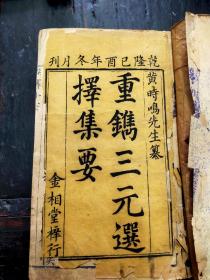 乾隆己酉年冬月刊
黄時鳴先生纂
重鐫三元選
擇集要
金相堂梓行